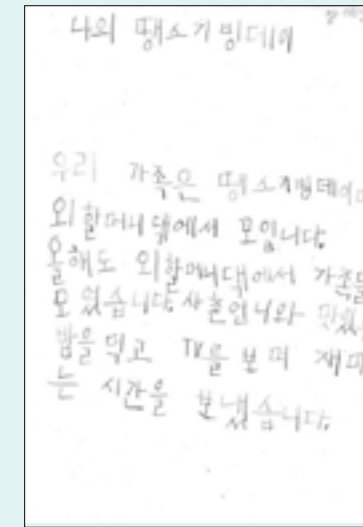 나의 땡스기빙데이
우리 가족은 땡스기빙데이
외할머니댁에서 모입니다
올해도 외할머니댁에서 가족들
모였습니다 사촌언니와 맛있
밥을 먹고 TV를 보며 재미
는 시간을 보냈습니다.